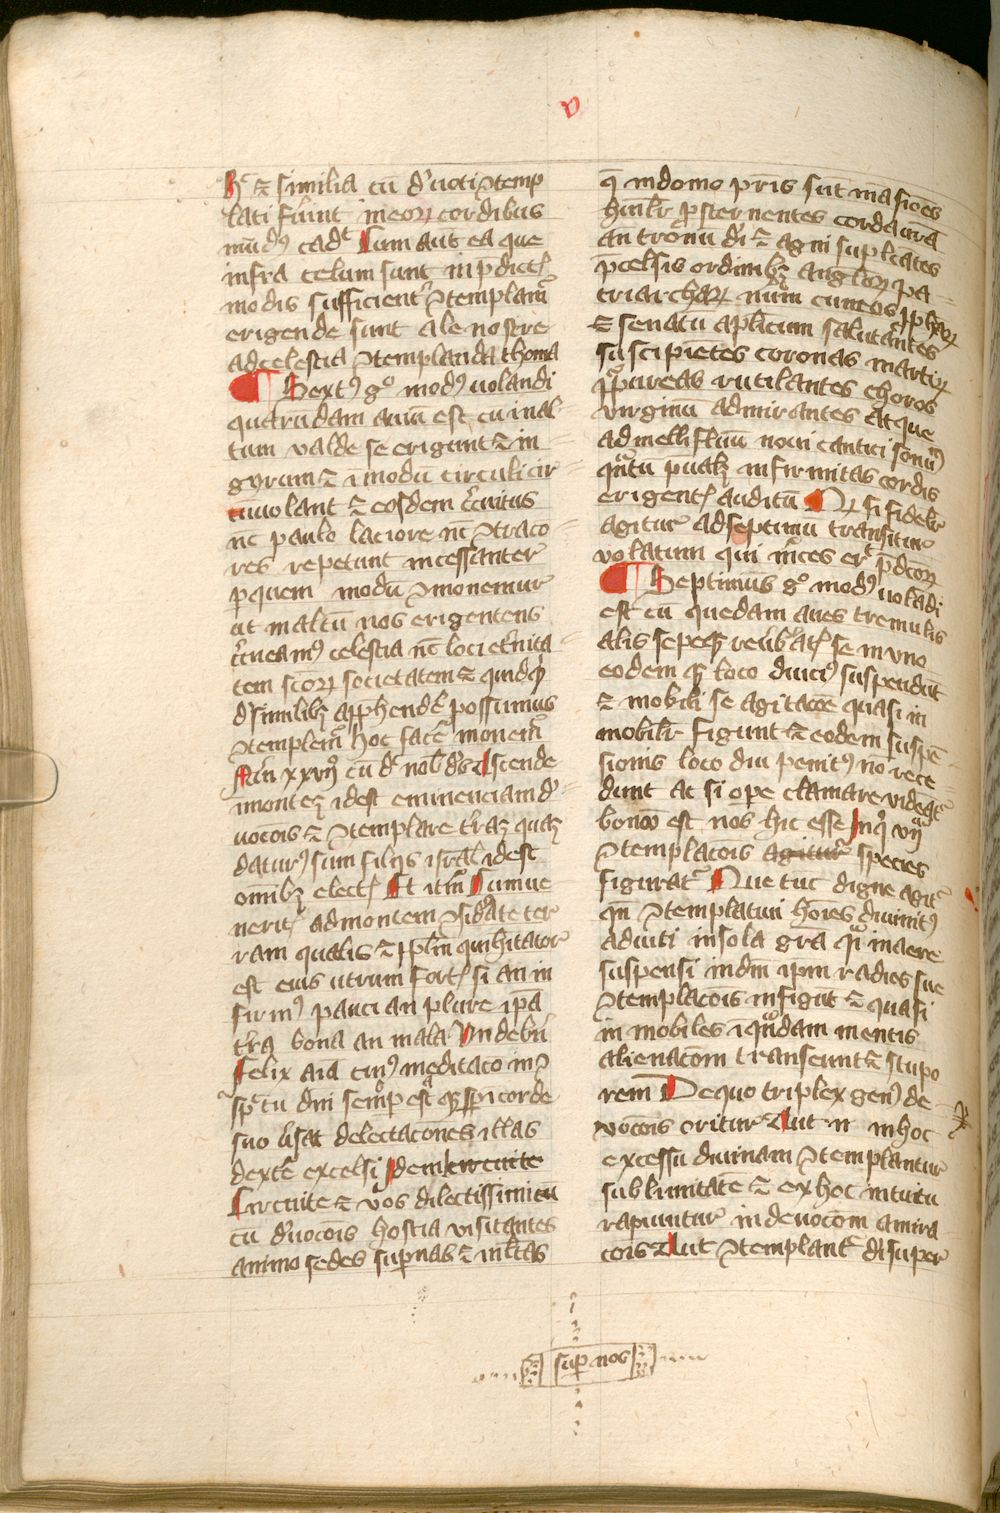 v
hͨ ⁊ similia cū d'uoti ɔtemp
lati fu'int in eoꝝ cordibus
mūdꝯ cadet Cum aut ea que
infra celum sunt in pdictꝭ
modis sufficient' ɔtemplam'
erigende sunt ale nostre
ad celestia ɔtemplanda thoma
¶ Sextꝯ gͦ modꝯ uolandi
quarundam auiū est cū in al-
tum valde se erigunt ⁊ in
gyrum ⁊ ī modū circuli cir
cūuolant ⁊ eosdem c'cuitus
nc paulo laciore nc ɔtraco
res repetunt incessanter
ꝑ quem modū ɔmonemur
ut in altū nos erigentes
c'cueamꝯ celestia nc loci et'nita
tem scoꝝ societatem ⁊ quidqͥd
d' similibꝫ apphend'e possumus
ɔtemplem' hoc fac'e monem'
Nūi xxvij cū d'r nobͥ d'ns Ascende
montēꝫ idest eminenciam d'
uocōis ⁊ ɔtemplare t'raꝫ quaꝫ
daturꝯ sum filijs isr'al idest
omibꝫ electꝭ Et itm Cum ue
neritꝭ ad montem ɔsid'ate ter
ram qualis ⁊ pplm qui hitator
est eius utrum fortꝭ si an in
firmꝯ pauci an plure ipa
t'ra bona an mala Vn debn'
Felix aīa cuiꝯ meditaco in ɔ
spc'tu dni semp est qꝫ spi corde
suo v'sat delectacones illas
dexte excelsi Idem circuite
Circuite ⁊ vos dilectissimi cū
cū d'uocōis hostia visitantes
animo sedes supnas ⁊ ml'tas
q̄ in domo pris sūt māsiōes
humilr' ꝓsternentes corda ur̄a
an tronū dī ⁊ agni suplicātes
p̄celsis ordinibꝫ angloꝝ pa-
triarchaꝝ num' cuneos ꝓphaꝝ
⁊ senatū aplicum salutātes
suscipiētes coronas martiꝝ
pᵘpureas rutilantes choros
virginū admirantes atque
ad mellifluū noui cantici sonū
qntū p̄ualꝫ infirmitas cordis
erigentꝭ auditū Nꝝ si fidelr'
agitur ad septimū transitur
volatum qui īnces er't p̄dcoꝝ
¶ Septimus gͦ modꝯ uolādi
est cū quedam aues tremulis
alis sepeqꝫ reu'b'atꝭ se in vno
eodem qꝫ loco diuciꝯ suspendūt
⁊ mobili se agitacōe quasi in
mobilr' figunt ⁊ eodem suspē-
sionis loco diu penitꝯ nō rece
dunt ac si ope clamare videat'
bonū est nos hic esse In qͦ vijᵃ
ɔtemplacōis agitur species
figurat' Que tūc digne agit'
qn ɔtemplatiui hoīes diuinitꝯ
adiuti in sola gr̄a qͣi in aere
suspensi in dm ipm radios sue
ɔtemplacōis infigūt ⁊ quasi
inmobiles ī qndam mentis
alienacōm transeunt ⁊ stupo
rem De quo triplex genꝯ de-
vocōis oritur Aut n in hoc
excessu diuinam ɔtemplantur
sublimitatē ⁊ ex hoc intuitu
rapiuntur in deuocōm amira
cōis Aut ɔtemplant' dī super
sup nos